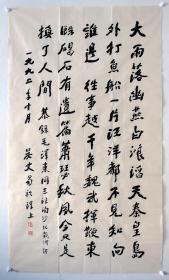 大雨落幽燕白浪滔天秦皇島
外打魚船一片汪洋都不見知向
誰邊 往事越千年魏武揮鞭東
臨碣石有遺篇蕭瑟秋風今又是
換了人間 恭錄毛澤東同志詞浪淘沙北戴河
一九九二年十月